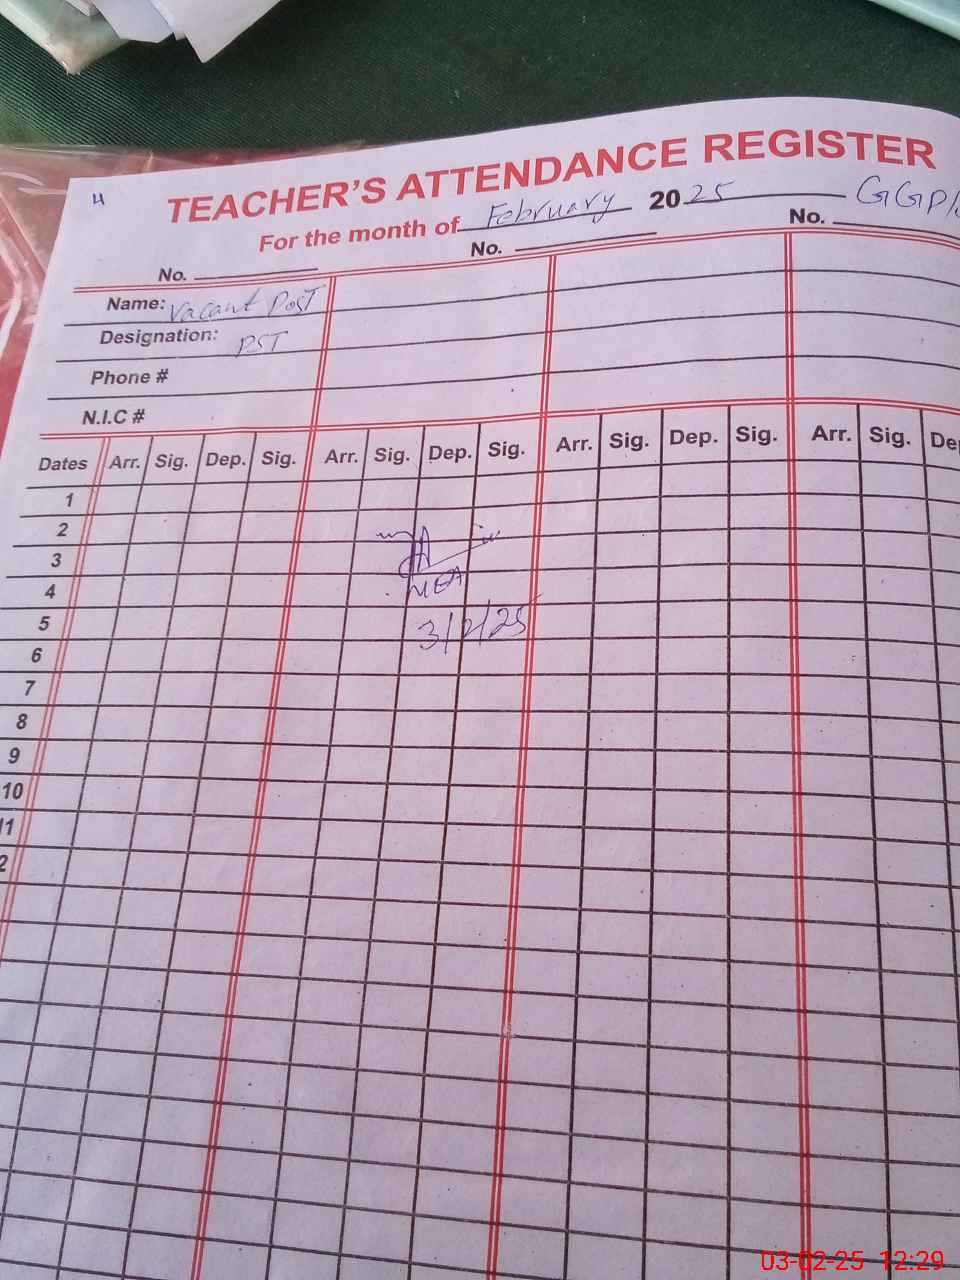 4
TEACHER'S ATTENDANCE REGISTER
For the month of February 2025 GGP
No. No. No.
Name: Vacant Post
Designation: PST
Phone #
N.I.C #
Dates Arr. Sig. Dep. Sig. Arr. Sig. Dep. Sig. Arr. Sig. Dep. Sig. Arr. Sig. De
1
2
3
4
MEA
5
3/2/25
6
7
8
9
10
11
2
03-02-25 12:29